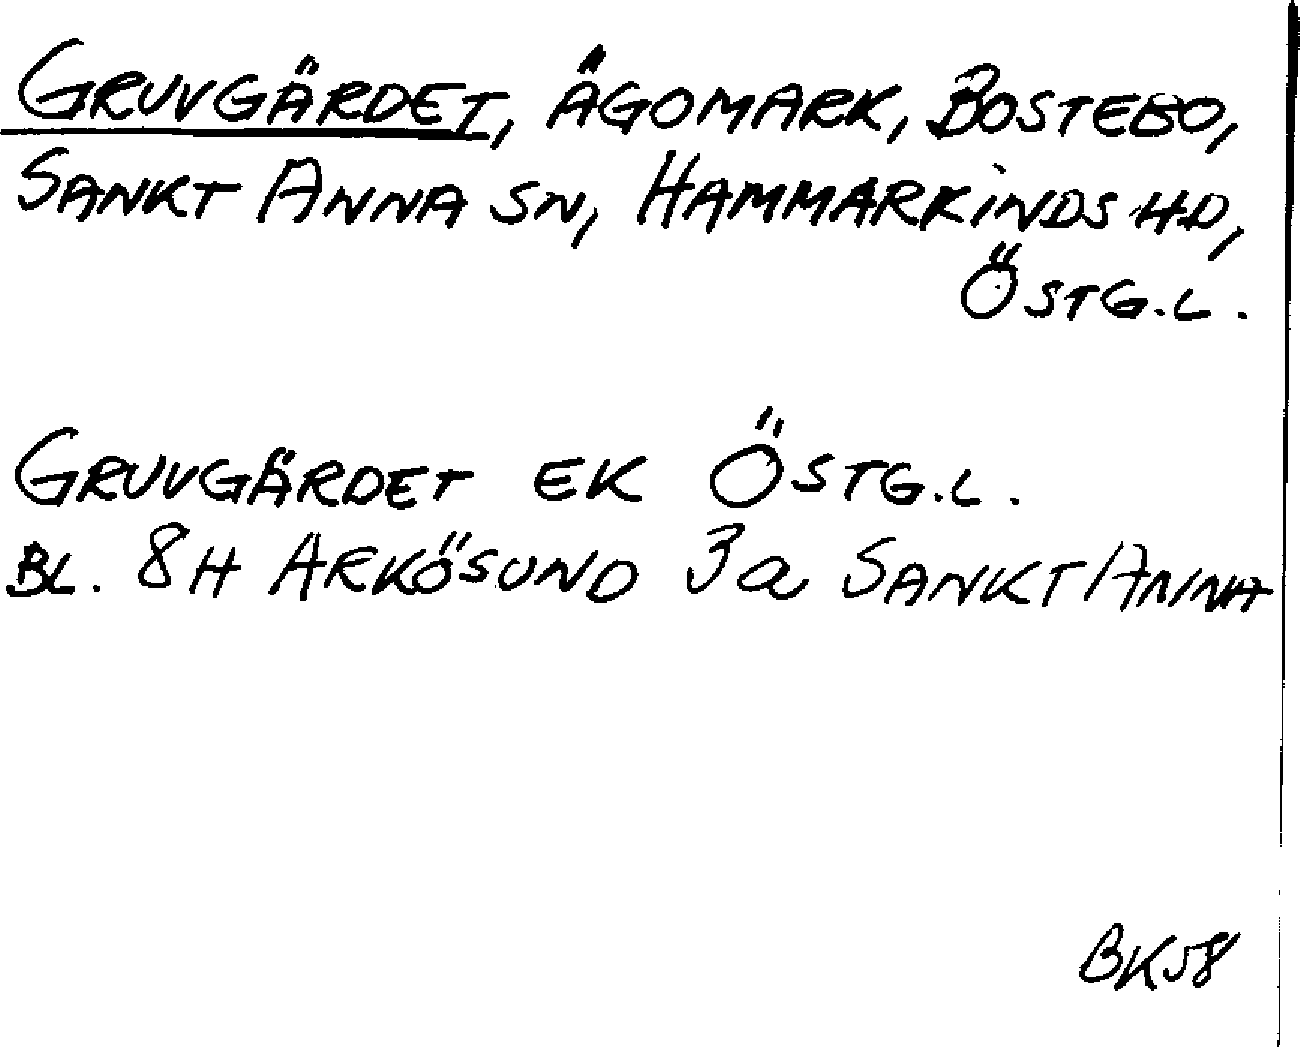 GRUVGÄRDET, ÄGOMARK, BOSTEBO,
SANKT ANNA SN, HAMMARKINDS HD,
ÖSTG.L.
GRUVGÄRDET EK ÖSTG.L.
BL. 8H ARKÖSUND 3a SANKT ANNA
BK58